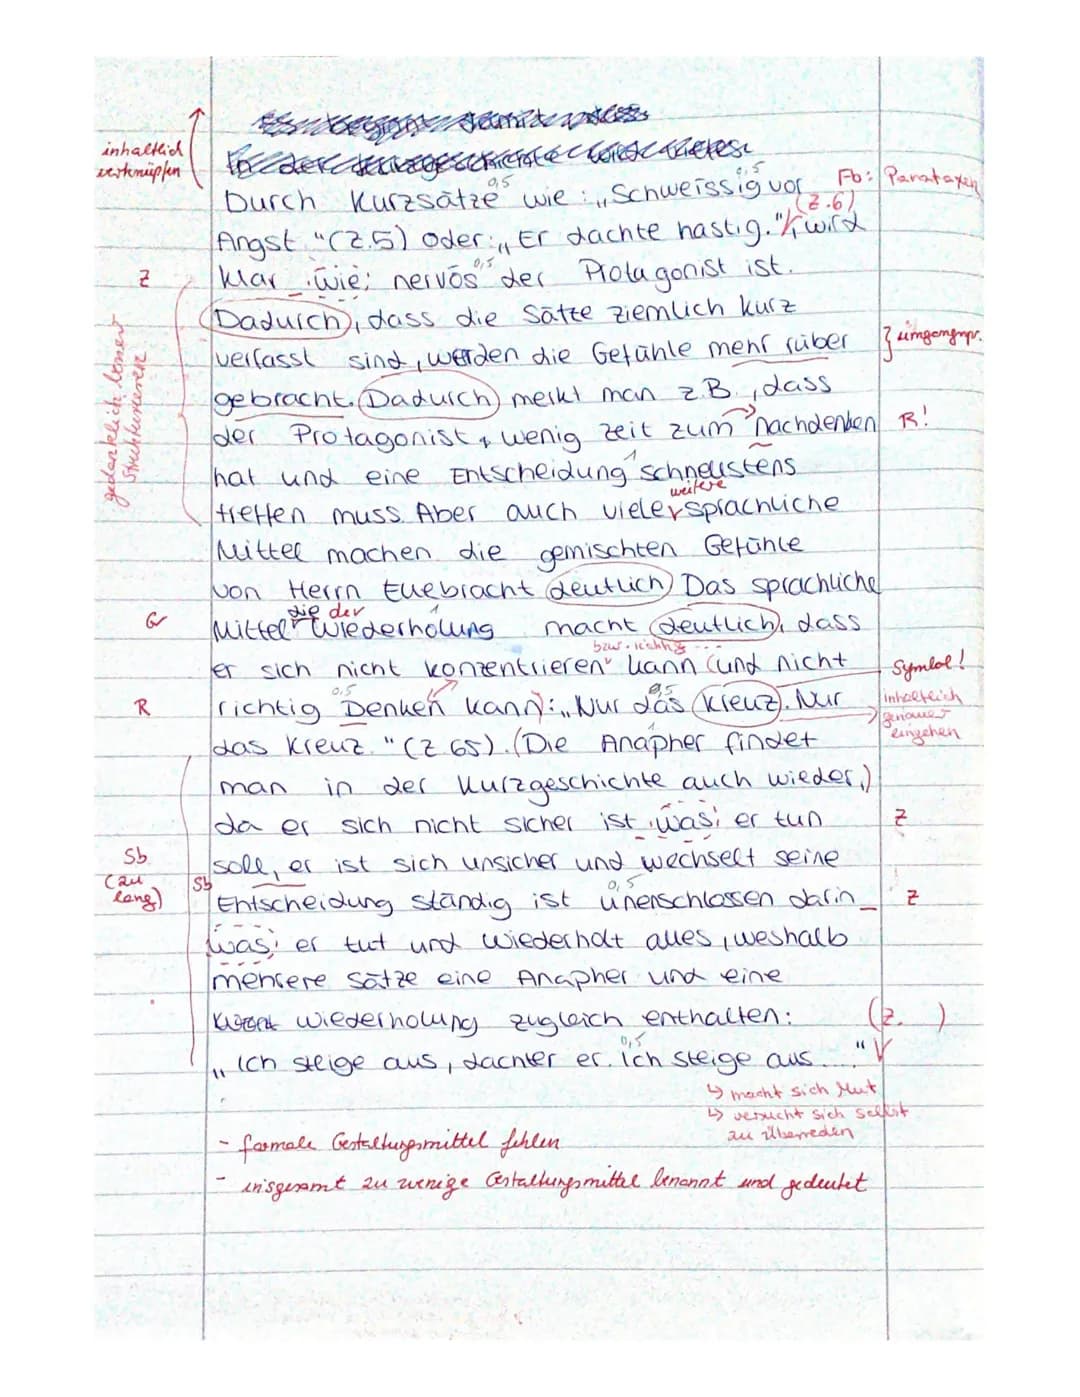 inhaltlich
verknüpfen
0,5 0,5 Fb: Parataxen
Durch Kurzsätze wie: „Schweissig vor
(Z.6)
Angst."(Z.5) oder: „Er dachte hastig." wird
0,5
Z klar wie nervös der Protagonist ist.
Dadurch, dass die Sätze ziemlich kurz
verfasst sind, werden die Gefühle mehr rüber } umgangspr.
gedanklich besser
strukturieren
gebracht. Dadurch merkt man z.B., dass
der Protagonist wenig zeit zum nachdenken R!
hat und eine Entscheidung schneustens
weitere
treffen muss. Aber auch viele sprachliche
Mittel machen die gemischten Gefühle
von Herrn Ellebracht deutlich Das sprachliche
die der
Gr Mittel Wiederholung macht deutlich, dass
bzw. richtig
er sich nicht konzentrieren kann (und nicht Symbol!
0,5 0,5
R richtig Denken kann): „Nur das Kreuz. Nur inhaltlich
genauer
eingehen
das Kreuz." (Z 65). (Die Anapher findet
man in der Kurzgeschichte auch wieder,)
da er sich nicht sicher ist was er tun Z
Sb
(zu
lang)
soll, er ist sich unsicher und wechselt seine
Sb 0,5
Entscheidung ständig ist unerschlossen darin Z
was er tut und wiederholt alles, weshalb
mehrere Sätze eine Anapher und eine
wiederholung zugleich enthalten: (Z. )
0,5
„Ich steige aus, dachter er. Ich steige aus...."
↳ macht sich Mut
↳ versucht sich selbst
zu überreden
- formale Gestaltungsmittel fehlen
- insgesamt zu wenige Gestaltungsmittel benannt und gedeutet